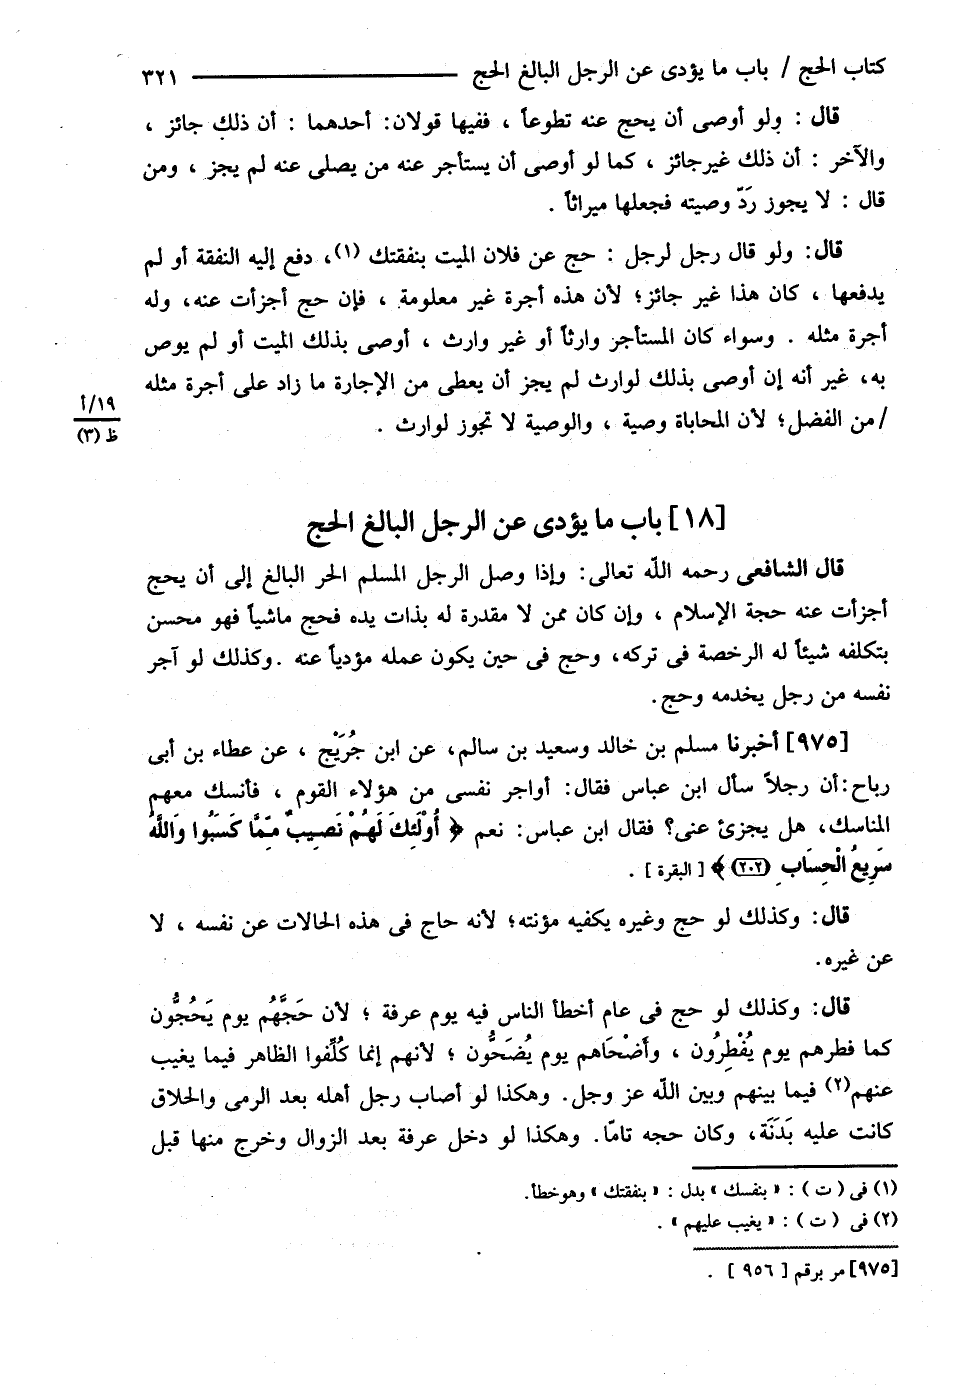 كتاب الحج / باب ما يؤدى عن الرجل البالغ الحج ــــــــــــــــــــ ٣٢١
قال : ولو أوصى أن يحج عنه تطوعاً ، ففيها قولان: أحدهما : أن ذلك جائز ،
والآخر : أن ذلك غيرجائز ، كما لو أوصى أن يستأجر عنه من يصلى عنه لم يجز ، ومن
قال : لا يجوز رَدّ وصيته فجعلها ميراثاً .
قال: ولو قال رجل لرجل : حج عن فلان الميت بنفقتك (١)، دفع إليه النفقة أو لم
يدفعها ، كان هذا غير جائز؛ لأن هذه أجرة غير معلومة ، فإن حج أجزأت عنه، وله
أجرة مثله . وسواء كان المستأجر وارثاً أو غير وارث ، أوصى بذلك الميت أو لم يوص
به، غير أنه إن أوصى بذلك لوارث لم يجز أن يعطى من الإجارة ما زاد على أجرة مثله
١٩/أ
ظ (٣)
/من الفضل؛ لأن المحاباة وصية ، والوصية لا تجوز لوارث .
[١٨] باب ما يؤدى عن الرجل البالغ الحج
قال الشافعى رحمه الله تعالى: وإذا وصل الرجل المسلم الحر البالغ إلى أن يحج
أجزأت عنه حجة الإسلام ، وإن كان ممن لا مقدرة له بذات يده فحج ماشياً فهو محسن
بتكلفه شيئاً له الرخصة فى تركه، وحج فى حين يكون عمله مؤدياً عنه .وكذلك لو آجر
نفسه من رجل يخدمه وحج.
[٩٧٥] أخبرنا مسلم بن خالد وسعيد بن سالم، عن ابن جُرَيْج ، عن عطاء بن أبى
رباح:أن رجلاً سأل ابن عباس فقال: أواجر نفسى من هؤلاء القوم ، فأنسك معهم
المناسك، هل يجزئ عنى؟ فقال ابن عباس: نعم ﴿ أُوْلَئِكَ لَهُمْ نَصِيبٌ مِّمَّا كَسَبُوا وَاللَّهُ
سَرِيعُ الْحِسَابِ (٢٠٢) ﴾ [ البقرة ] .
قال: وكذلك لو حج وغيره يكفيه مؤنته؛ لأنه حاج فى هذه الحالات عن نفسه ، لا
عن غيره.
قال: وكذلك لو حج فى عام أخطأ الناس فيه يوم عرفة ؛ لأن حَجَّهُم يوم يَحُجُّون
كما فطرهم يوم يُفْطِرُون ، وأَضْحَاهم يوم يُضَحُّون ؛ لأنهم إنما كُلِّفوا الظاهر فيما يغيب
عنهم(٢) فيما بينهم وبين الله عز وجل. وهكذا لو أصاب رجل أهله بعد الرمى والحلاق
كانت عليه بَدَنَة، وكان حجه تامّا. وهكذا لو دخل عرفة بعد الزوال وخرج منها قبل
(١) فى ( ت ) : « بنفسك » بدل : « بنفقتك » وهوخطأ.
(٢) فى ( ت ) : « يغيب عليهم » .
[٩٧٥] مر برقم [ ٩٥٦ ] .